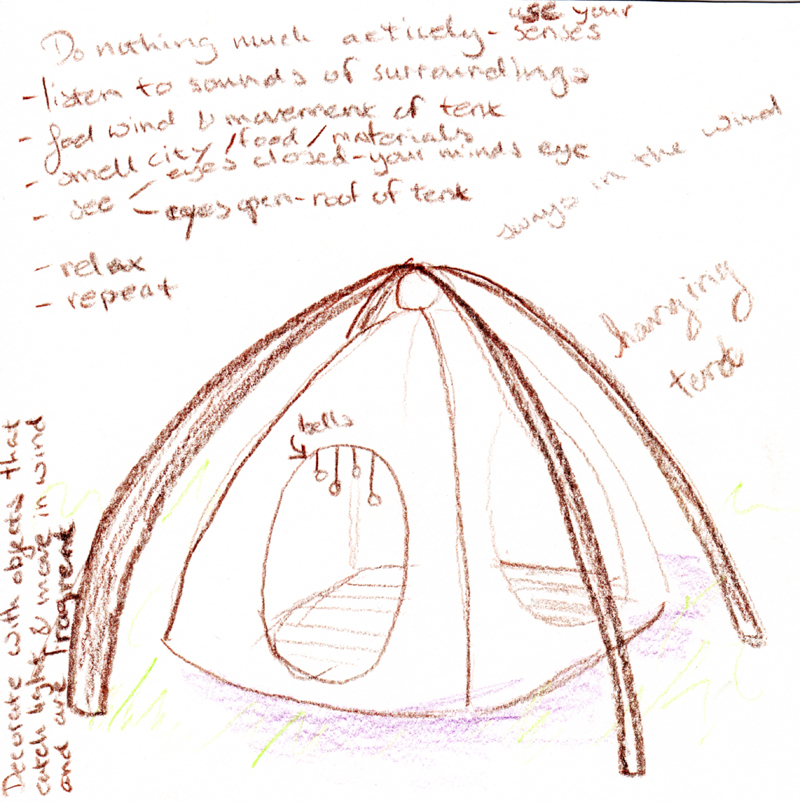 use your
Do nothing much actively - senses
- listen to sounds of surroundings
- feel wind & movement of tent
- smell city / food / materials
- see - eyes closed - your minds eye
- eyes open - roof of tent
- relax
- repeat
sways in the wind
hanging
tent
bells
Decorate with objects that
catch light & move in wind
and are fragrent